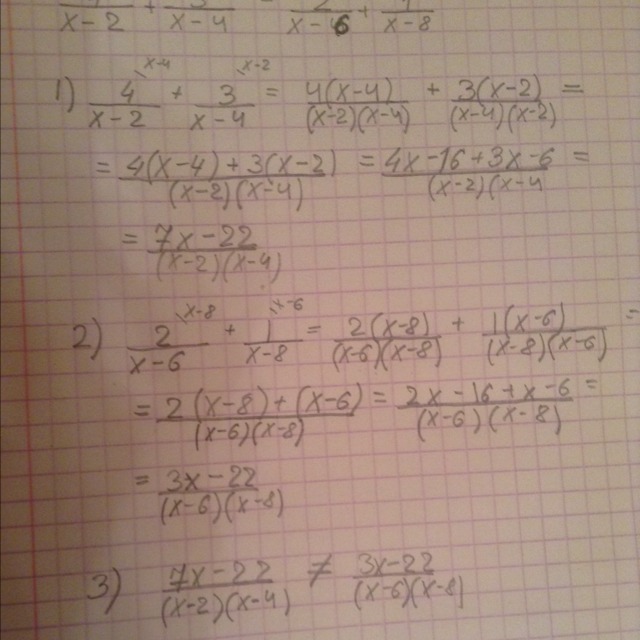 x-2 x-4 x-6 x-8
1) 4/(x-2) \x-4 + 3/(x-4) \x-2 = 4(x-4)/((x-2)(x-4)) + 3(x-2)/((x-4)(x-2)) =
= (4(x-4)+3(x-2))/((x-2)(x-4)) = (4x-16+3x-6)/((x-2)(x-4 =
= (7x-22)/((x-2)(x-4))
2) 2/(x-6) \x-8 + 1/(x-8) \x-6 = 2(x-8)/((x-6)(x-8)) + 1(x-6)/((x-8)(x-6)) =
= (2(x-8)+(x-6))/((x-6)(x-8)) = (2x-16+x-6)/((x-6)(x-8)) =
= (3x-22)/((x-6)(x-8))
3) (7x-22)/((x-2)(x-4)) ≠ (3x-22)/((x-6)(x-8))